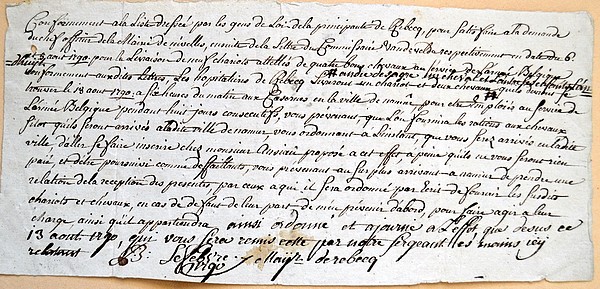 Conformement a la Liste dressée par les gens de Loi de la principauté de Rebecq, pour satisfaire a la demande
du chef officier de la Mairie de nivelles, ensuite de la Lettre du Commissaire Vandevelde respectivement en date du 6
8 aout 1790, pour le Levaison de neuf chariots attellés de quatre bons chevaux au service de L'armée Belgique
conformement auxdites Lettres, Les hospitaliers de Rebecq Livreront un chariot et deux chevaux,
trouver le 18 aout 1790, a six heures du matin aux Casernes en la ville de namur, pour etre emploiés au service de
L'armée Belgique pendant huit jours consecutifs, vous prevenant, que L'on fournira les rations aux chevaux
sitot qu'ils seront arrivés a ladite ville de namur, vous ordonnant a L'instant, que vous serez arrivés en ladite
ville, d'aller se faire inscrire chez monsieur Ansiau proposé a cet effet, a peine qu'ils ne vous seront rien
paié, et d'etre poursuivi comme defaillants, vous prevenant au surplus arrivant a namur de prendre une
relation de la reception des presentes, par ceux a qui il sera ordonné par Ecrit de fournir les susdits
chariots et chevaux, en cas de defaut de leur part de m'en prevenir d'abord, pour faire agir a leur
charge ainsi qu'il appartiendra ainsi ordonné et ajourné a L'effet que dessus ce
13 aout 1790, qui vous sera remis cette par notre sergeant les moins icy
relatant Lefebvre Maÿr. de rebecq